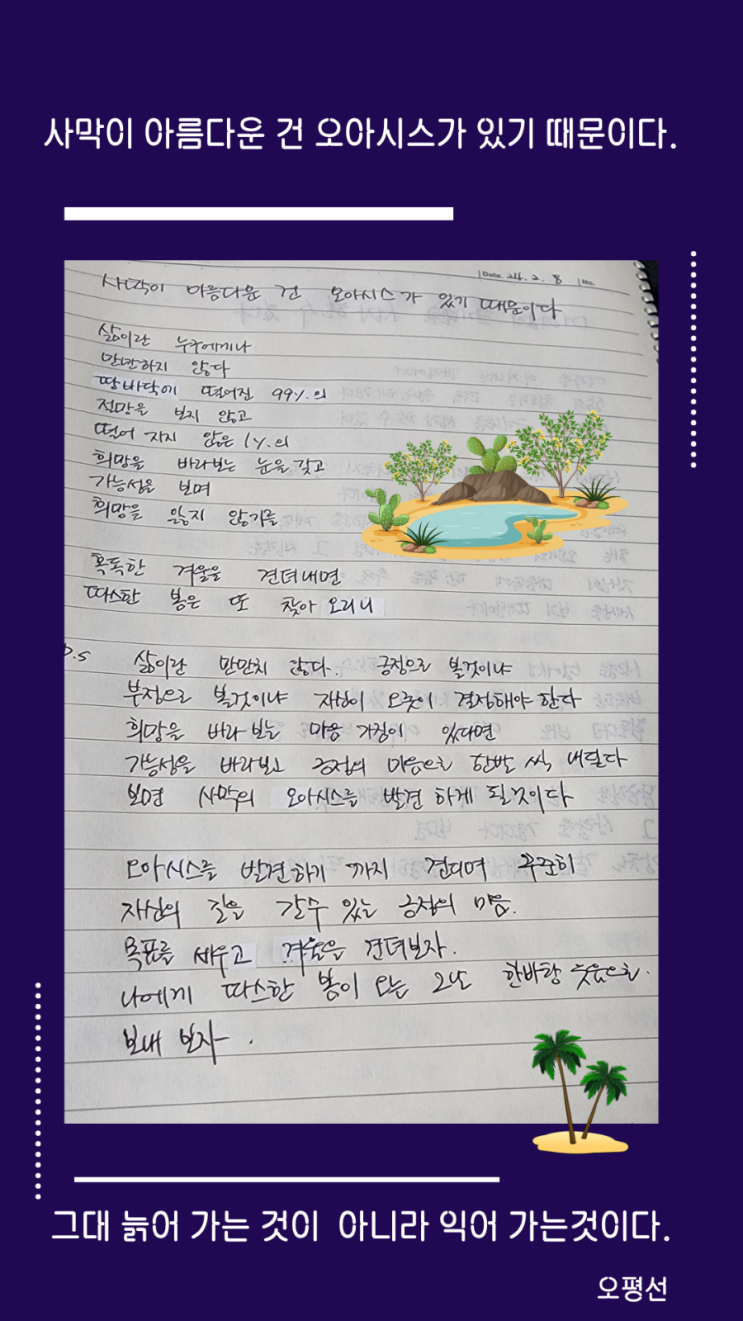 사막이 아름다운 건 오아시스가 있기 때문이다.
Date 24. 2. 8 No.
사막이 아름다운 건 오아시스가 있기 때문이다
삶이란 누구에게나
만만하지 않다
땅바닥에 떨어진 99%의
절망을 보지 않고
떨어 지지 않은 1%의
희망을 바라보는 눈을 갖고
가능성을 보며
희망을 잃지 않기를
혹독한 겨울을 견뎌내면
따스한 봄은 또 찾아 오리니
P.S 삶이란 만만치 않다. 긍정으로 볼것이냐
부정으로 볼것이냐 자신이 오롯이 결정해야 한다
희망을 바라 보는 마음 가짐이 있다면
가능성을 바라보고 긍정의 마음으로 한발 씩 내딛다
보면 사막의 오아시스를 발견 하게 될것이다
오아시스를 발견하기 까지 견디며 꾸준히
자신의 길을 갈수 있는 긍정의 마음.
목표를 세우고 겨울을 견뎌보자.
나에게 따스한 봄이 오는 그날 한바탕 웃음으로.
보내 보자.
그대 늙어 가는 것이 아니라 익어 가는것이다.
오평선